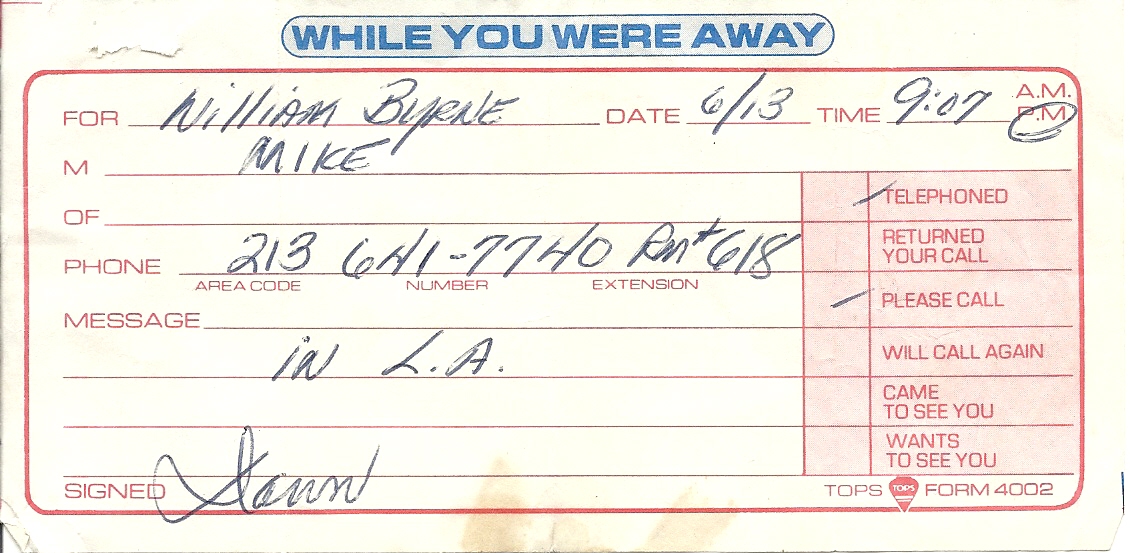 WHILE YOU WERE AWAY
FOR William Byrne DATE 6/13 TIME 9:07 A.M.
P.M
M MIKE
TELEPHONED
OF
RETURNED
YOUR CALL
PHONE 213 641-7740 Rm# 618
AREA CODE NUMBER EXTENSION
PLEASE CALL
MESSAGE
in L.A.
WILL CALL AGAIN
CAME
TO SEE YOU
WANTS
TO SEE YOU
SIGNED
TOPS TOPS FORM 4002